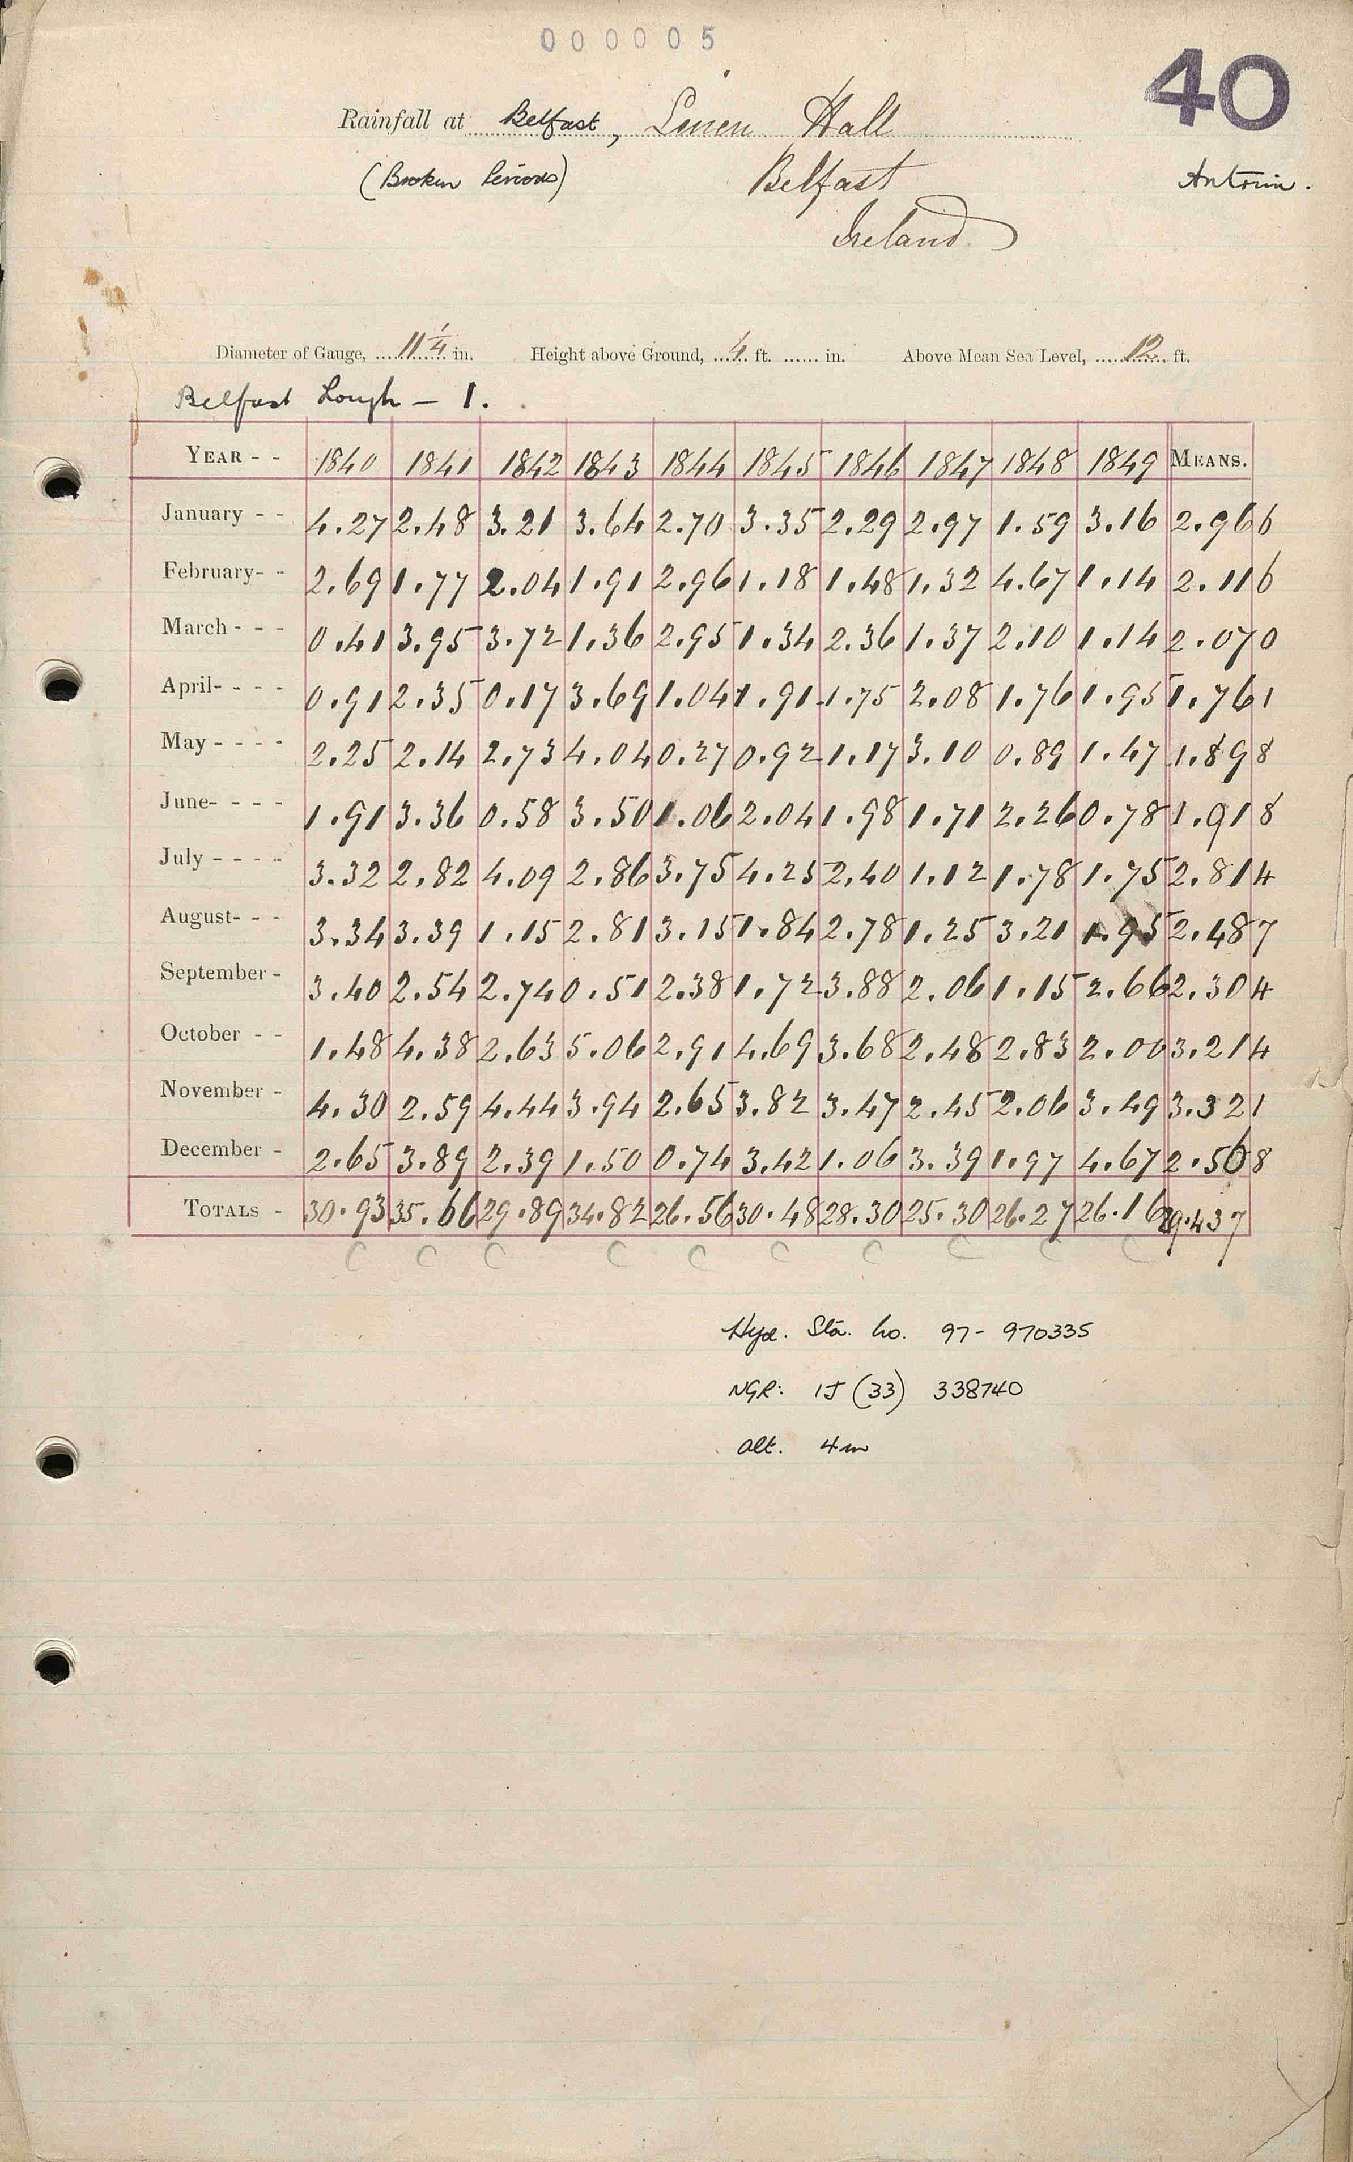 000005
40
Rainfall at Belfast, Linen Hall
(Broken Periods) Belfast Antrim.
Ireland
Diameter of Gauge, 11 1/4 in. Height above Ground, 4 ft. ...... in. Above Mean Sea Level, 12 ft.
Belfast Lough - 1.
YEAR - - 1840 1841 1842 1843 1844 1845 1846 1847 1848 1849 MEANS.
January - - 4.27 2.48 3.21 3.64 2.70 3.35 2.29 2.97 1.59 3.16 2.966
February- - 2.69 1.77 2.04 1.91 2.96 1.18 1.48 1.32 4.67 1.14 2.116
March - - - 0.41 3.95 3.72 1.36 2.95 1.34 2.36 1.37 2.10 1.14 2.070
April- - - - 0.91 2.35 0.17 3.69 1.04 1.91 1.75 2.08 1.76 1.95 1.761
May - - - - 2.25 2.14 2.73 4.04 0.27 0.92 1.17 3.10 0.89 1.47 1.898
June- - - - 1.91 3.36 0.58 3.50 1.06 2.04 1.98 1.71 2.26 0.78 1.918
July - - - - 3.32 2.82 4.09 2.86 3.75 4.25 2.40 1.12 1.78 1.75 2.814
August- - - 3.34 3.39 1.15 2.81 3.15 1.84 2.78 1.25 3.21 1.95 2.487
September - 3.40 2.54 2.74 0.51 2.38 1.72 3.88 2.06 1.15 2.66 2.304
October - - 1.48 4.38 2.63 5.06 2.91 4.69 3.68 2.48 2.83 2.00 3.214
November - 4.30 2.59 4.44 3.94 2.65 3.82 3.47 2.45 2.06 3.49 3.321
December - 2.65 3.89 2.39 1.50 0.74 3.42 1.06 3.39 1.97 4.67 2.568
TOTALS - 30.93 35.66 29.89 34.82 26.56 30.48 28.30 25.30 26.27 26.16 29.437
C C C C C C C C C C
Hyd. Sta. No. 97- 970335
NGR: IJ (33) 338740
alt. 4m